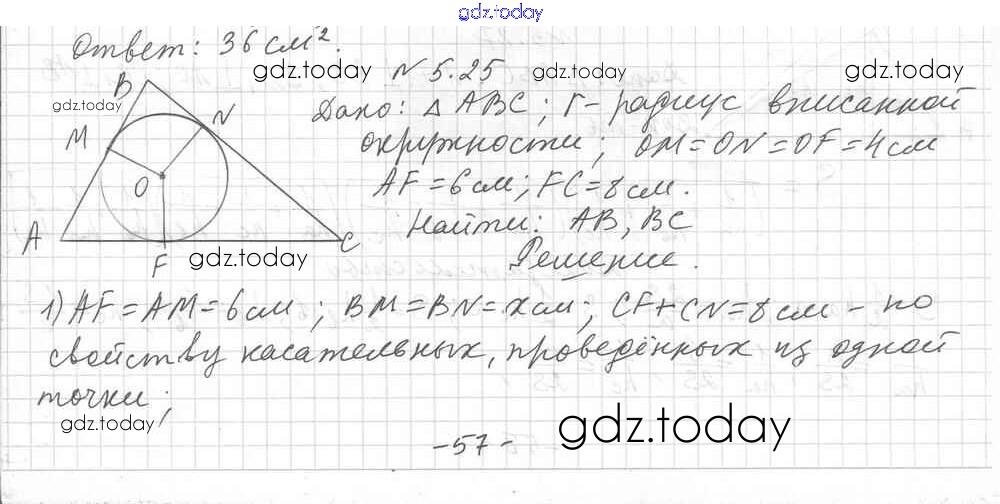 gdz.today
Ответ: 36 см².
gdz.today N 5.25 gdz.today gdz.today
B
gdz.today
M
N
O
A
F
C
gdz.today
Дано: △ ABC; r - радиус вписанной
окружности; OM=ON=OF=4см
AF=6см; FC=8см.
Найти: AB, BC
Решение.
1) AF=AM=6см; BM=BN=xсм; CF+CN=8см - по
свойству касательных, проведённых из одной
точки;
gdz.today
-57-
gdz.today